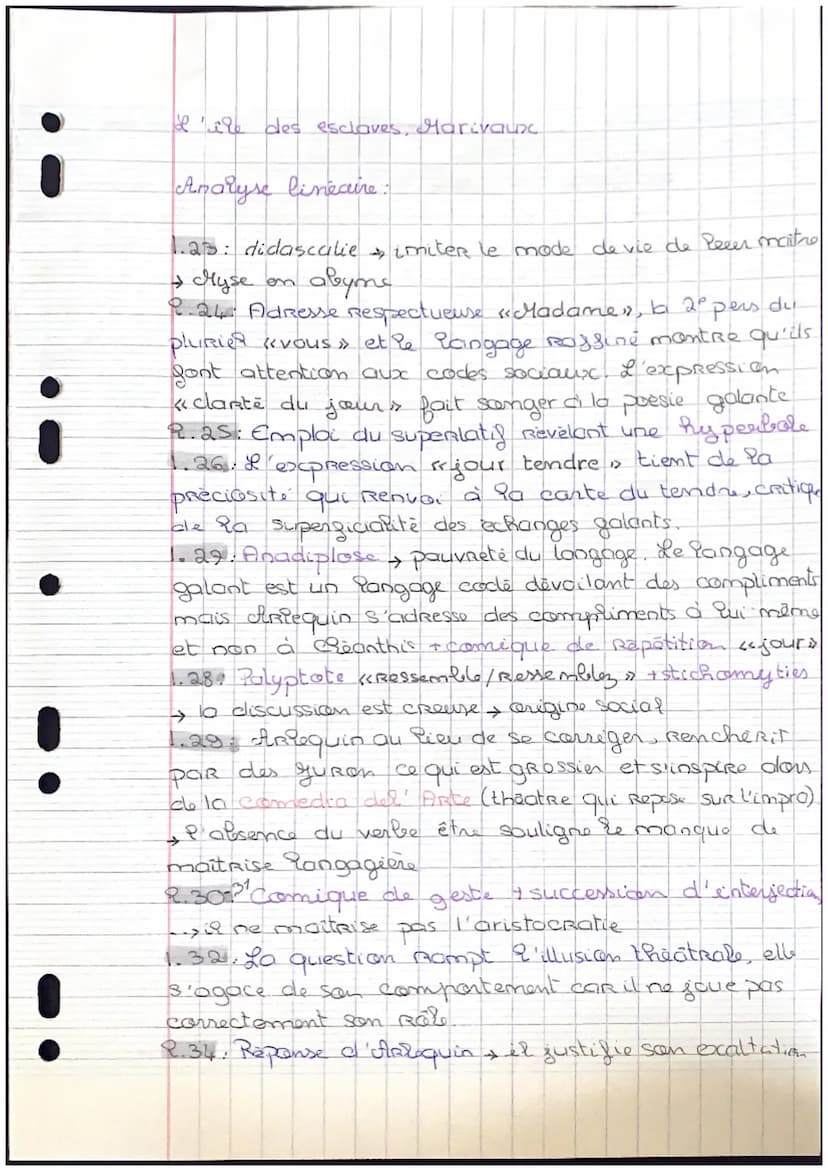 L'île des esclaves, Marivaux
Analyse linéaire :
l.23 : didascalie → imiter le mode de vie de leur maître
→ Myse en abyme
l.24 : Adresse respectueuse «Madame», la 2e pers du
pluriel «vous» et le langage raffiné montre qu'ils
font attention aux codes sociaux. L'expression
«clarté du jour» fait songer à la poésie galante
l.25 : Emploi du superlatif révélant une hyperbole
l.26 : L'expression «jour tendre» tient de la
préciosité qui renvoi à la carte du tendre, critique
de la superficialité des échanges galants.
l.29 : Anadiplose → pauvreté du langage. Le langage
galant est un langage codé dévoilant des compliments
mais Arlequin s'adresse des compliments à lui-même
et non à Cléanthis + comique de répétition «jour»
l.28 : Polyptote «Ressemble/Ressemblez» + stichomyties
→ la discussion est creuse → origine social
l.29 : Arlequin au lieu de se corriger, rencherit
par des juron ce qui est grossier et s'inspire alors
de la comedia del' Arte (théâtre qui repose sur l'impro)
→ l'absence du verbe être souligne le manque de
maîtrise langagière
l.30-31 Comique de geste + succession d'interjection
→ il ne maîtrise pas l'aristocratie
l.32 : La question rompt l'illusion théâtrale, elle
s'agace de son comportement car il ne joue pas
correctement son rôle.
l.34 : Réponse d'Arlequin → il justifie son exaltation